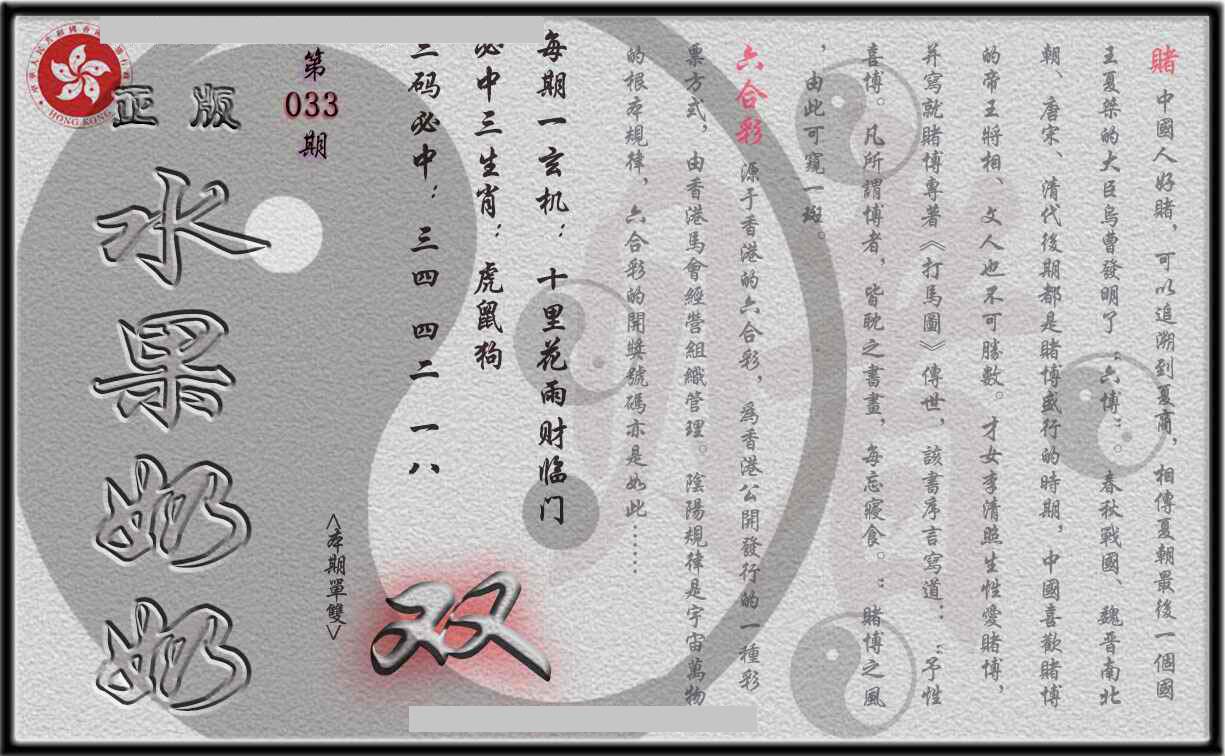 賭 中國人好賭，可以追溯到夏商，相傳夏朝最後一個國
王夏桀的大臣烏曹發明了“六博”。春秋戰國、魏晋南北
朝、唐宋、清代後期都是賭博盛行的時期，中國喜歡賭博
的帝王將相、文人也不可勝數。才女李清照生性愛賭博，
并寫就賭博專著《打馬圖》傳世，該書序言寫道：“予性
喜博。凡所謂博者，皆耽之書畫，每忘寢食。”賭博之風
，由此可窺一斑。
六合彩 源于香港的六合彩，爲香港公開發行的一種彩
票方式，由香港馬會經營組織管理。陰陽規律是宇宙萬物
的根本規律，六合彩的開獎號碼亦是如此……
每期一玄机：十里花雨财临门
必中三生肖：虎鼠狗
三码必中：三四 四二 一八
第
033
期
<本期單雙>
双
正版
水果奶奶
HONG KONG